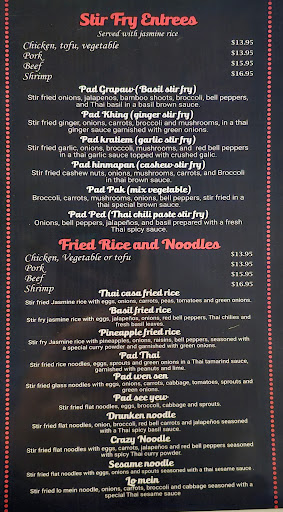 Stir Fry Entrees
Served with jasmine rice
Chicken, tofu, vegetable $13.95
Pork $13.95
Beef $15.95
Shrimp $16.95
Pad Grapaw (Basil stir fry)
Stir fried onions, jalapenos, bamboo shoots, broccoli, bell peppers,
and Thai basil in a basil brown sauce.
Pad Khing (ginger stir fry)
Stir fried ginger, onions, carrots, broccoli and mushrooms, in a thai
ginger sauce garnished with green onions.
Pad kratiem (garlic stir fry)
Stir fried garlic, onions, broccoli, mushrooms, and red bell peppers
in a thai garlic sauce topped with crushed garlic.
Pad hinmapan (cashew stir fry)
Stir fried cashew nuts, onions, mushrooms, carrots, and Broccoli
in thai brown sauce.
Pad Pak (mix vegetable)
Broccoli, carrots, mushrooms, onions, bell peppers, stir fried in a
thai special brown sauce.
Pad Ped (Thai chili paste stir fry)
. Onions, bell peppers, jalapeños, and basil prepared with a fresh
Thai spicy sauce.
Fried Rice and Noodles
Chicken, Vegetable or tofu $13.95
Pork $13.95
Beef $15.95
Shrimp $16.95
Thai casa fried rice
Stir fried Jasmine rice with eggs, onions, carrots, peas, tomatoes and green onions.
Basil fried rice
Stir fry jasmine rice with eggs, jalapeños, onions, red bell peppers, Thai chilies and
fresh basil leaves.
Pineapple fried rice
Stir fry Jasmine rice with pineapples, onions, raisins, bell peppers, seasoned with
a special curry powder and garnished with green onions.
Pad Thai
Stir fried rice noodles, eggs, sprouts and green onions in a Thai tamarind sauce,
garnished with peanuts and lime.
Pad wen sen
Stir fried glass noodles with eggs, onions, carrots, cabbage, tomatoes, sprouts and
green onions.
Pad see yew
Stir fried flat noodles, eggs, broccoli, cabbage and sprouts.
Drunken noodle
Stir fried flat noodles, onion, broccoli, red bell carrots and jalapeños seasoned
with a Thai spicy basil sauce.
Crazy Noodle
Stir fried flat noodles with eggs, carrots, jalapeños and red bell peppers seasoned
with spicy Thai curry powder.
Sesame noodle
Stir fried flat noodles with eggs, onions and spouts seasoned with a thai sesame sauce .
Lo mein
Stir fried lo mein noodle, onions, carrots, broccoli and cabbage seasoned with a
special Thai sesame sauce